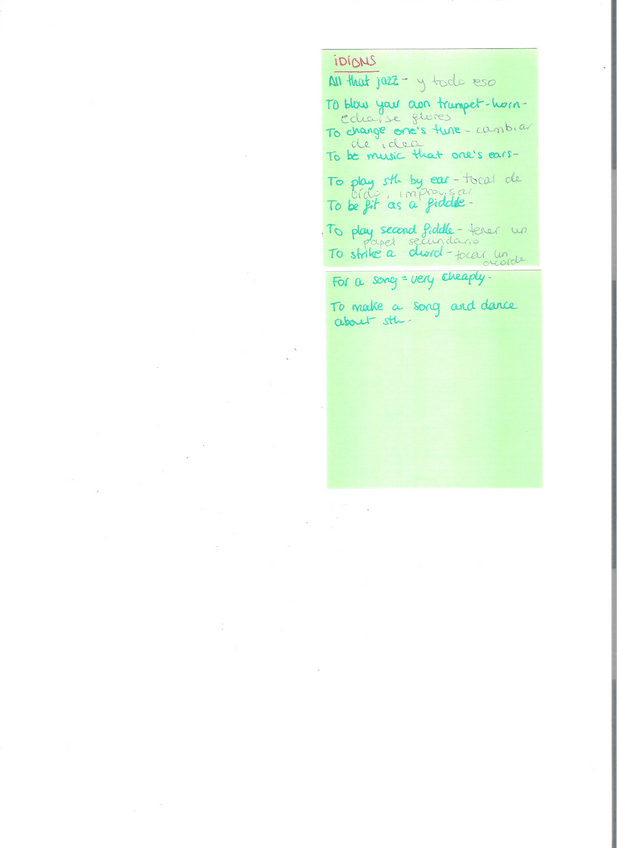 IDIOMS
All that jazz - y todo eso
To blow your own trumpet - horn -
echarse flores
To change one's tune - cambiar
de idea
To be music that one's ears -
To play sth by ear - tocal de
oido, improvisar
To be fit as a fiddle -
To play second fiddle - tener un
papel secundario
To strike a chord - tocar un
acorde
For a song = very cheaply -
To make a song and dance
about sth -